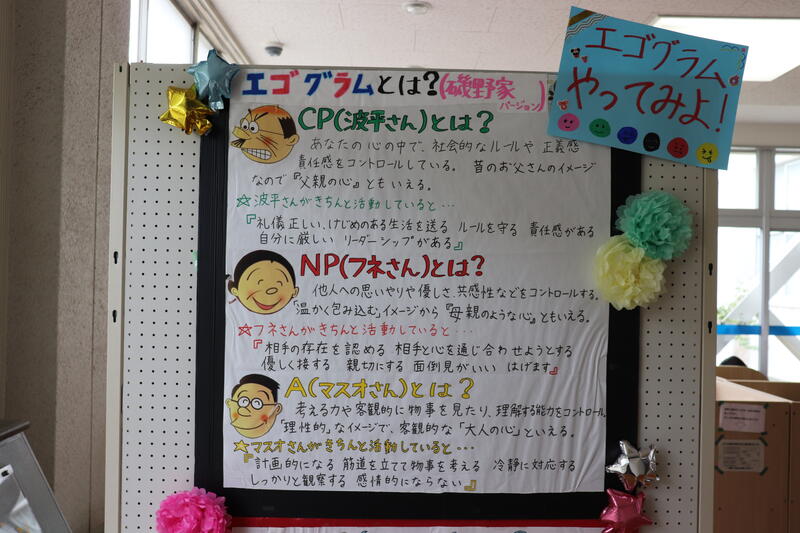 エゴグラムとは?(磯野家バージョン)
エゴグラム
やってみよ!
CP(波平さん)とは?
あなたの心の中で、社会的なルールや 正義感
責任感をコントロールしている。 昔のお父さんのイメージ
なので『父親の心』ともいえる。
☆波平さんがきちんと活動していると…
『礼儀正しい、けじめのある生活を送る ルールを守る 責任感がある
自分に厳しい リーダーシップがある』
NP(フネさん)とは?
他人への思いやりや優しさ、共感性などをコントロールする。
「温かく包み込む」イメージから『母親のような心』ともいえる。
☆フネさんがきちんと活動していると…
『相手の存在を認める 相手と心を通じ合わせようとする
優しく接する 親切にする 面倒見がいい はげます』
A(マスオさん)とは?
考える力や客観的に物事を見たり、理解する能力をコントロール。
「理性的」なイメージで、客観的な「大人の心」といえる。
☆マスオさんがきちんと活動していると…
『計画的になる 筋道を立てて物事を考える 冷静に対応する
しっかりと観察する 感情的にならない』